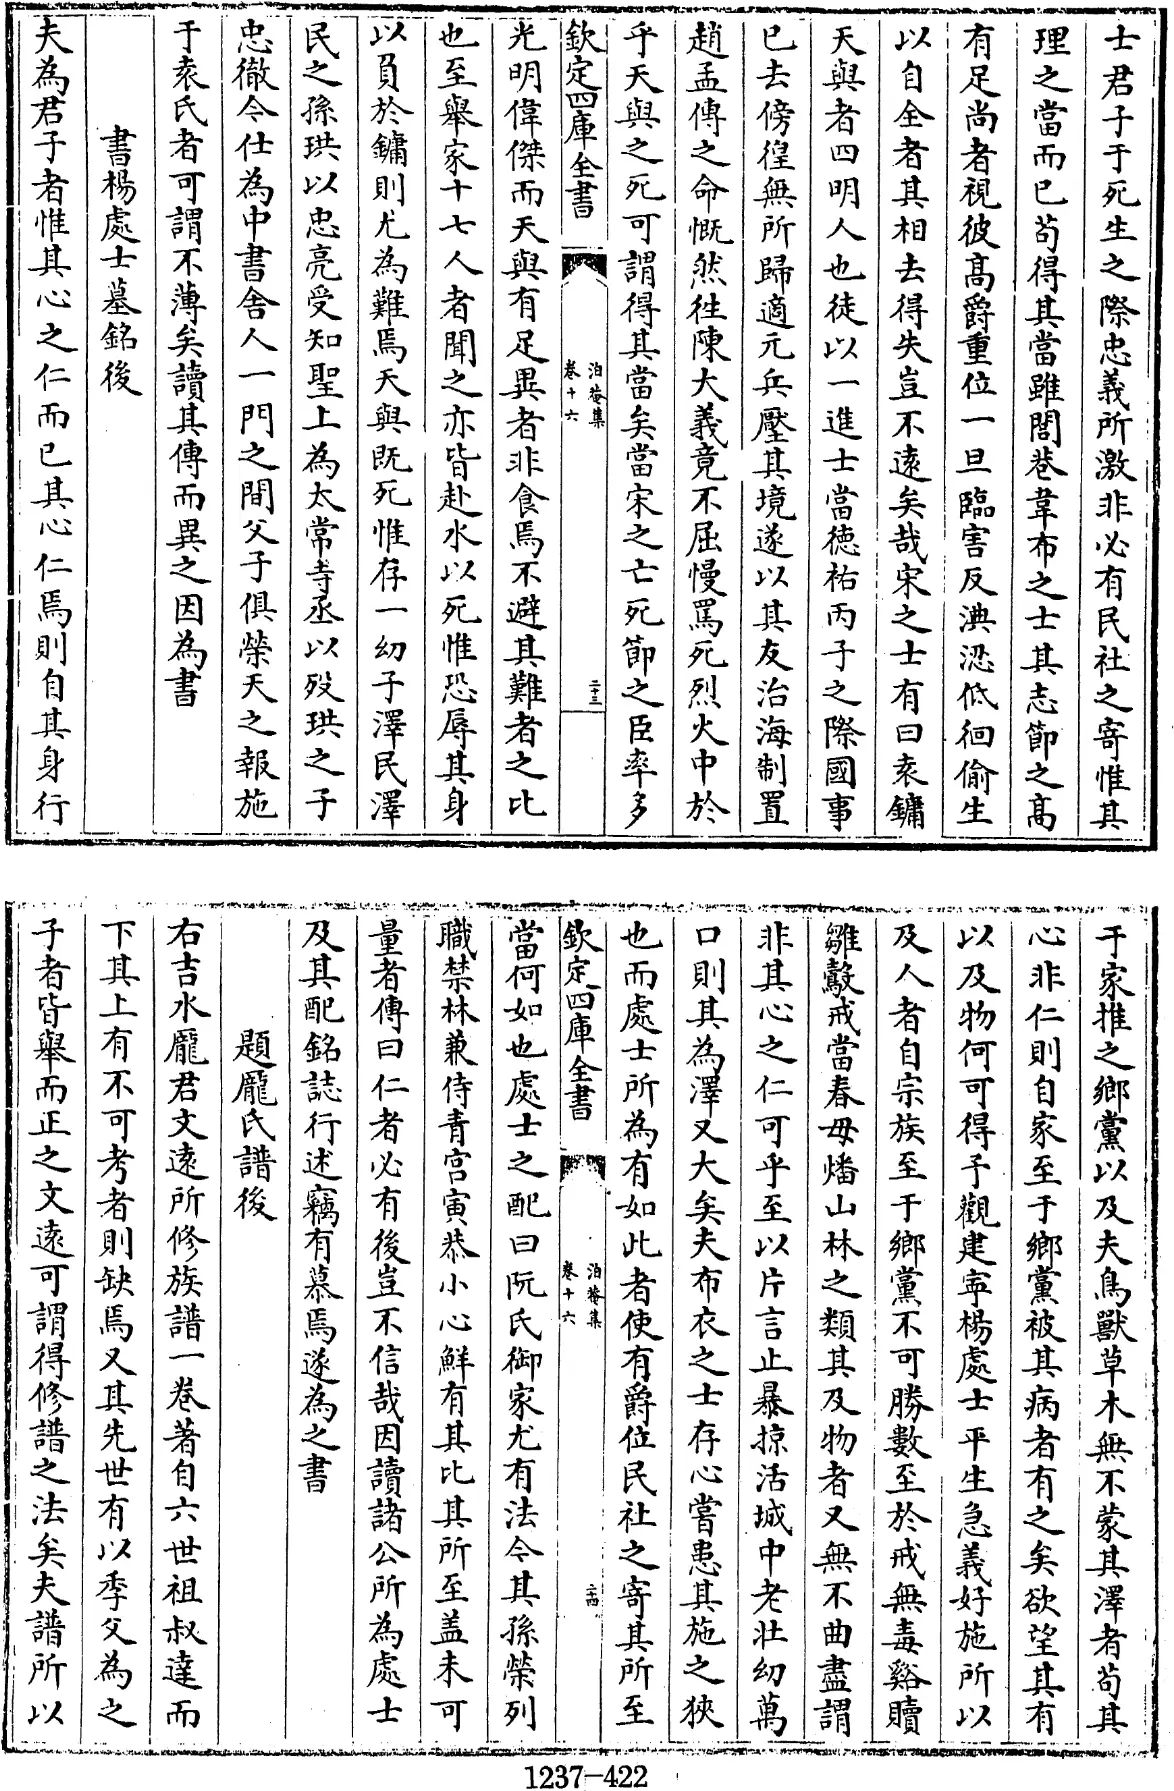 士君子于死生之際忠義所激非必有民社之寄惟其
理之當而已苟得其當雖閭巷韋布之士其志節之高
有足尚者視彼高爵重位一旦臨害反淟涊低徊偷生
以自全者其相去得失豈不遠矣哉宋之士有曰袁鏞
天與者四明人也徒以一進士當德祐丙子之際國事
已去傍徨無所歸適元兵壓其境遂以其友治海制置
趙孟傳之命慨然往陳大義竟不屈慢罵死烈火中於
乎天與之死可謂得其當矣當宋之亡死節之臣率多
欽定四庫全書
泊菴集
卷十六
二十三
光明偉傑而天與有足異者非食焉不避其難者之比
也至舉家十七人者聞之亦皆赴水以死惟恐辱其身
以負於鏞則尤為難焉天與既死惟存一幼子澤民澤
民之孫珙以忠亮受知聖上為太常寺丞以歿珙之子
忠徹今仕為中書舍人一門之間父子俱榮天之報施
于袁氏者可謂不薄矣讀其傳而異之因為書
書楊處士墓銘後
夫為君子者惟其心之仁而已其心仁焉則自其身行
于家推之鄉黨以及夫鳥獸草木無不蒙其澤者苟其
心非仁則自家至于鄉黨被其病者有之矣欲望其有
以及物何可得乎觀建寧楊處士平生急義好施所以
及人者自宗族至于鄉黨不可勝數至於戒無毒谿贖
雛鷇戒當春毋燔山林之類其及物者又無不曲盡謂
非其心之仁可乎至以片言止暴掠活城中老壯幼萬
口則其為澤又大矣夫布衣之士存心嘗患其施之狹
也而處士所為有如此者使有爵位民社之寄其所至
欽定四庫全書
泊菴集
卷十六
二十四
當何如也處士之配曰阮氏御家尤有法令其孫榮列
職禁林兼侍青宮寅恭小心鮮有其比其所至蓋未可
量者傳曰仁者必有後豈不信哉因讀諸公所為處士
及其配銘誌行述竊有慕焉遂為之書
題龎氏譜後
右吉水龎君文遠所修族譜一卷著自六世祖叔達而
下其上有不可考者則缺焉又其先世有以季父為之
子者皆舉而正之文遠可謂得修譜之法矣夫譜所以
1237-422